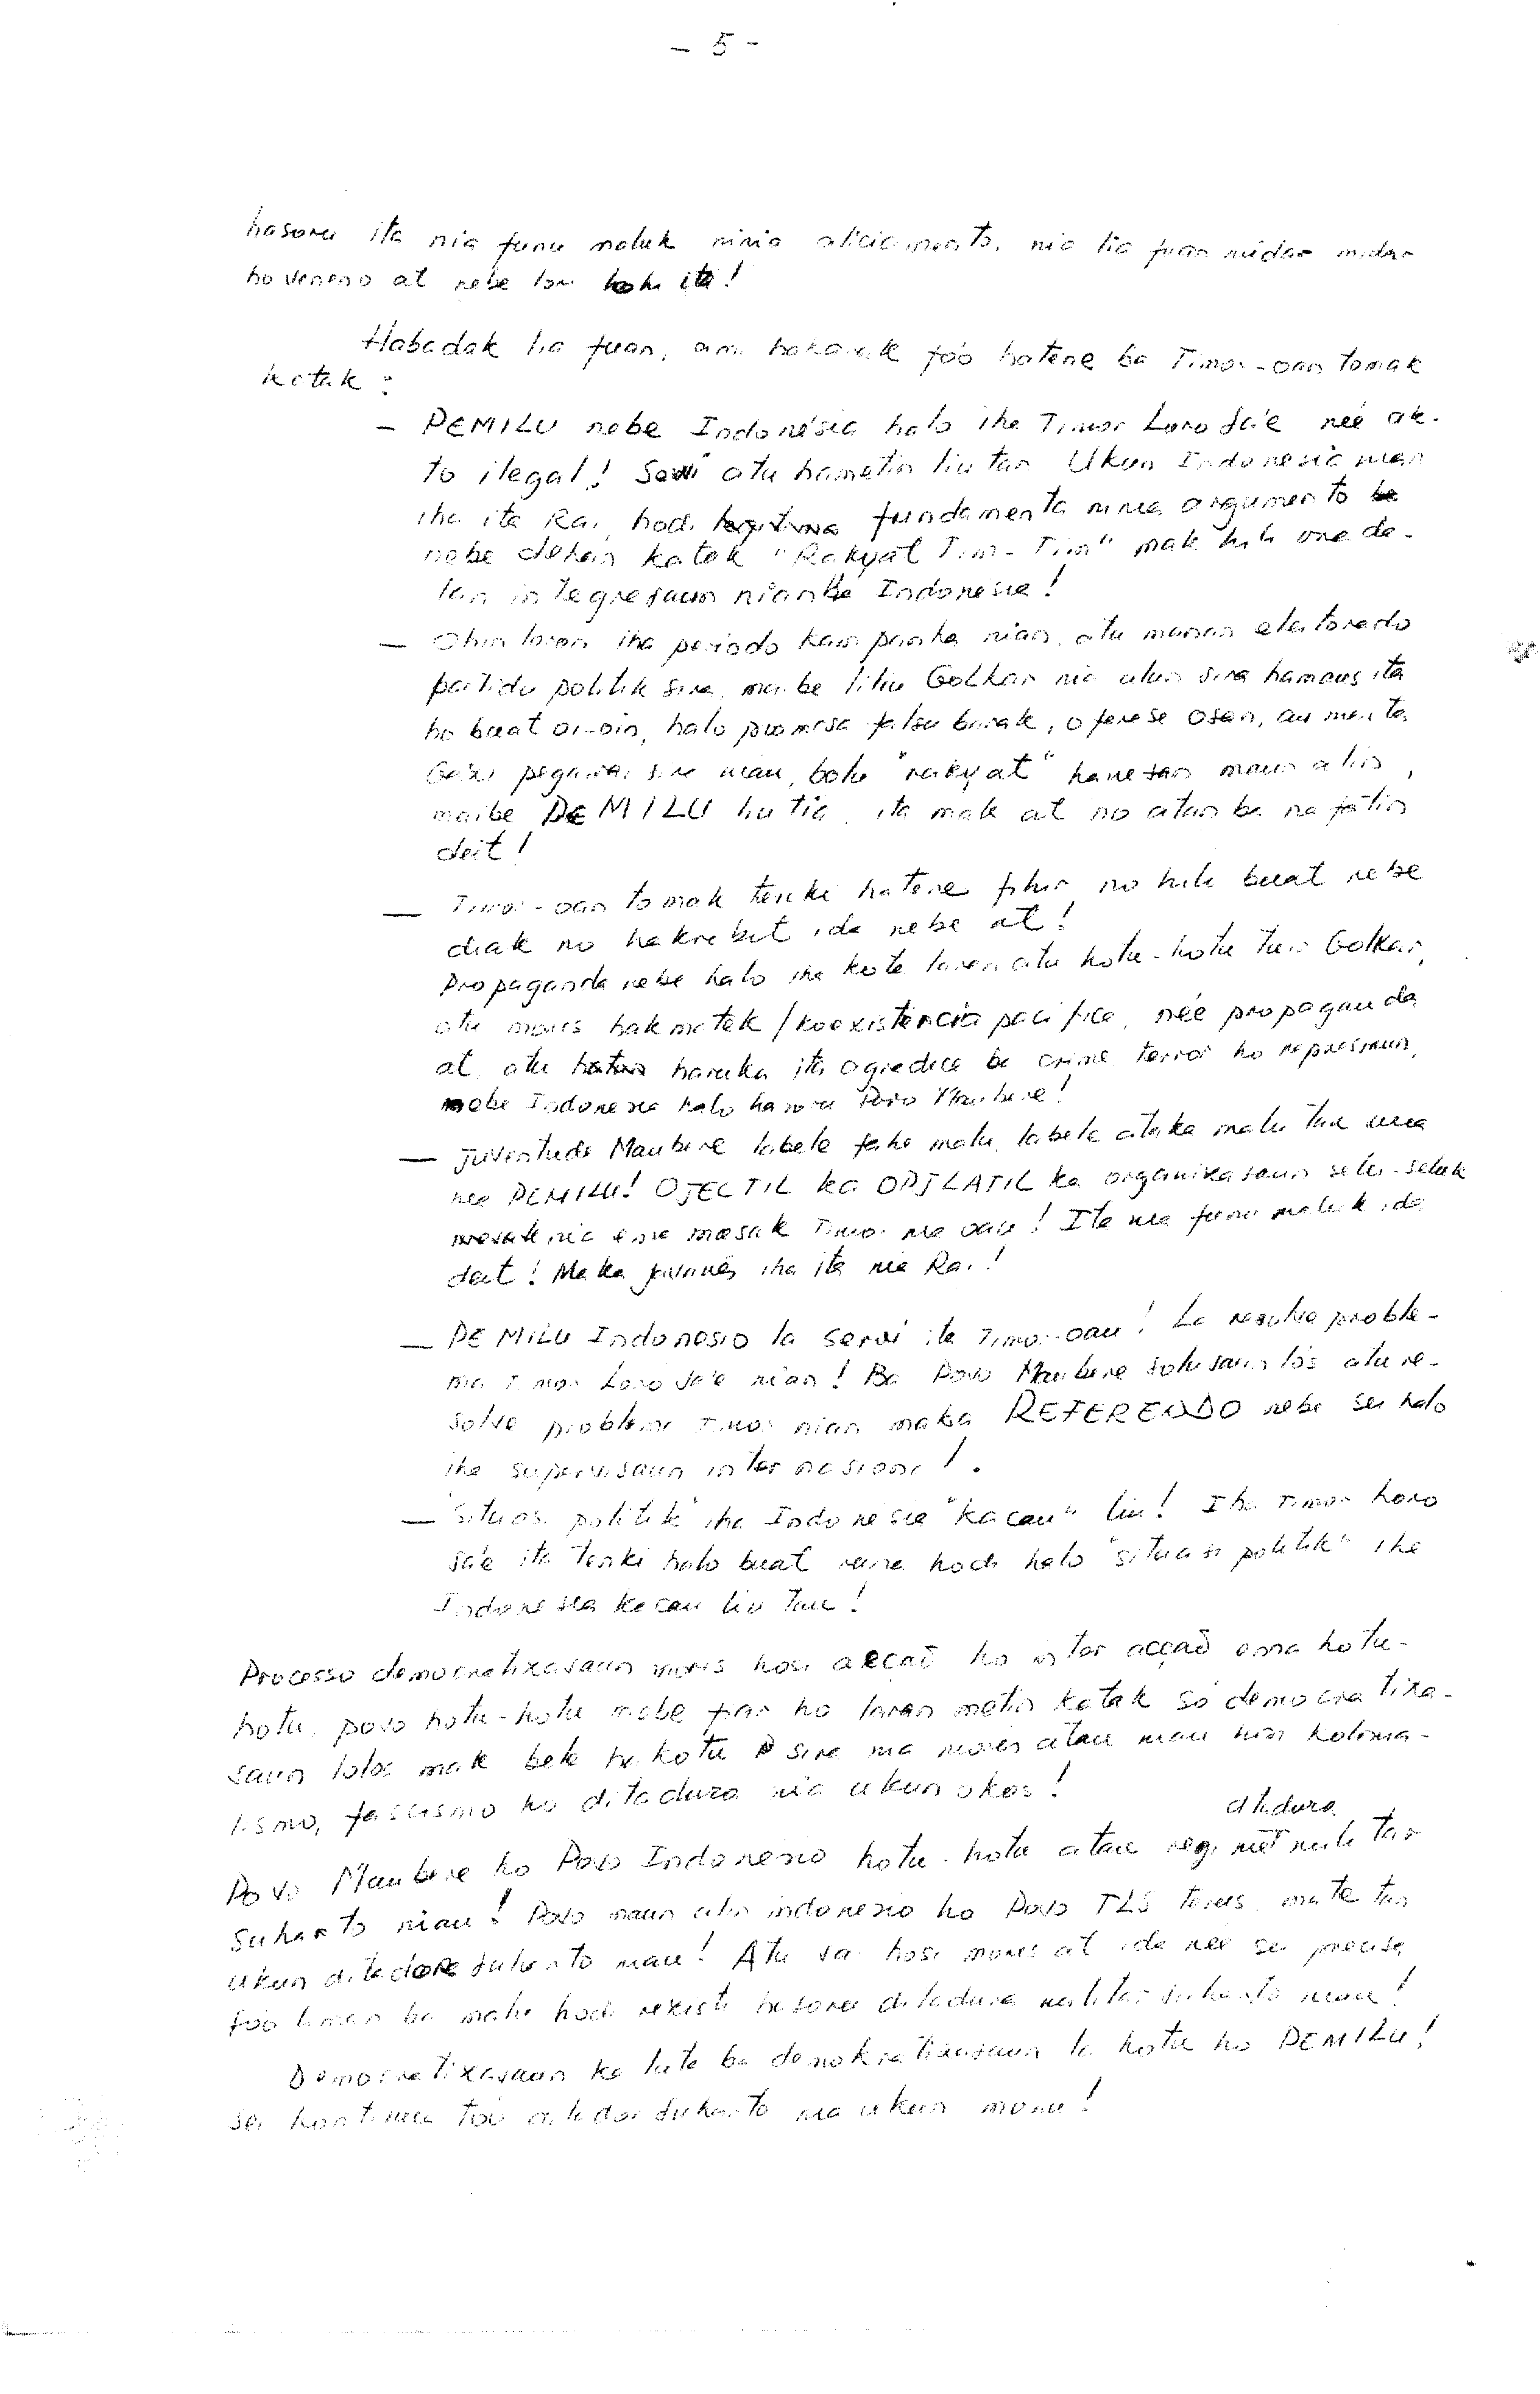 - 5 -
hasoru ita nia funu maluk ninia aliciamento, nia lia fuan midar midar
ho veneno at nebe lori hohu ita!
Habadak lia fuan, ami hakarak fó'o hatene ba Timor-oan tomak
katak:
- PEMILU nebe Indonésia halo iha Timor Loro Sa'e neé ak-
to ilegal! Servi atu hametin liu tan Ukun Indonesia nian
iha ita Rai, hodi fundamenta ninia argumento
nebe dehan katak "Rakyat Tim-Tim" mak hili one de-
lan integrasaun nian ba Indonésia!
- Ohin loron iha periodo kampanha nian, atu manan eleitorado
partidu politik sira, maibe liliu Golkar nia ulun sira hamaus ita
ho buat oi-oin, halo promesa falsu barak, oferese osan, aumenta
Gaxi pegawai sira nian, bolu "rakyat" hanesan maun alin,
maibe PEMILU liu tia, ita mak at no atan ba nafatin
deit!
- Timor-oan tomak tenki hatene fihir no hili buat nebe
diak no hakribit ida nebe at!
Propaganda nebe halo iha kota laran atu hotu-hotu tuir Golkar,
atu moris hakmatek / koexistencia pacifica, neé propaganda
at atu haruka ita agradece ba crime, terror ho represaun,
nebe Indonesia halo hasoru Povo Maubere!
- Juventude Maubere labele fahe malu, labele ataka malu tan
nia PEMILU! OJECTIL ka OPJLATIL ka organixasaun seluk-seluk
nia ema mesak Timor nia oan! Ita nia funu maluk ida
deit! Maka javanês iha ita nia Rai!
- PEMILU Indonesio la servi ita Timor-oan! La resolve proble-
ma Timor Loro Sa'e nian! Ba Povo Maubere solusaun lós atu re-
solve problema Timor nian maka REFERENDO nebe sei halo
iha supervisaun internasional!
- "Situasi politik" iha Indonésia "kacau" liu! Iha Timor Loro
Sa'e ita tenki halo buat ruma hodi halo "situasi politik" iha
Indonesia kacau liu tan!
Processo democratixasaun moris hosi acção ho inter acção ema hotu-
hotu, povo hotu-hotu nebe fiar ho laran metin katak só democratixa-
saun lolos mak bele hakotu sira nia moris atan nian husi kolonia-
lismo, fascismo ho ditadura nia ukun okos!
ditadura
Povo Maubere ho Povo Indonesio hotu-hotu atan regime militar
Suharto nian! Povo maun alin indonesio ho Povo TLS terus, mate tan
ukun ditadore Suharto nian! Atu sai hosi moris at ida neé sei precisa
fó'o liman ba malu hodi rexisti hasoru ditadura militar Suharto nian!
Democratixasaun ka luta ba demokratixasaun la hotu ho PEMILU!
Sei kontinua to'o ditador Suharto nia ukun monu!